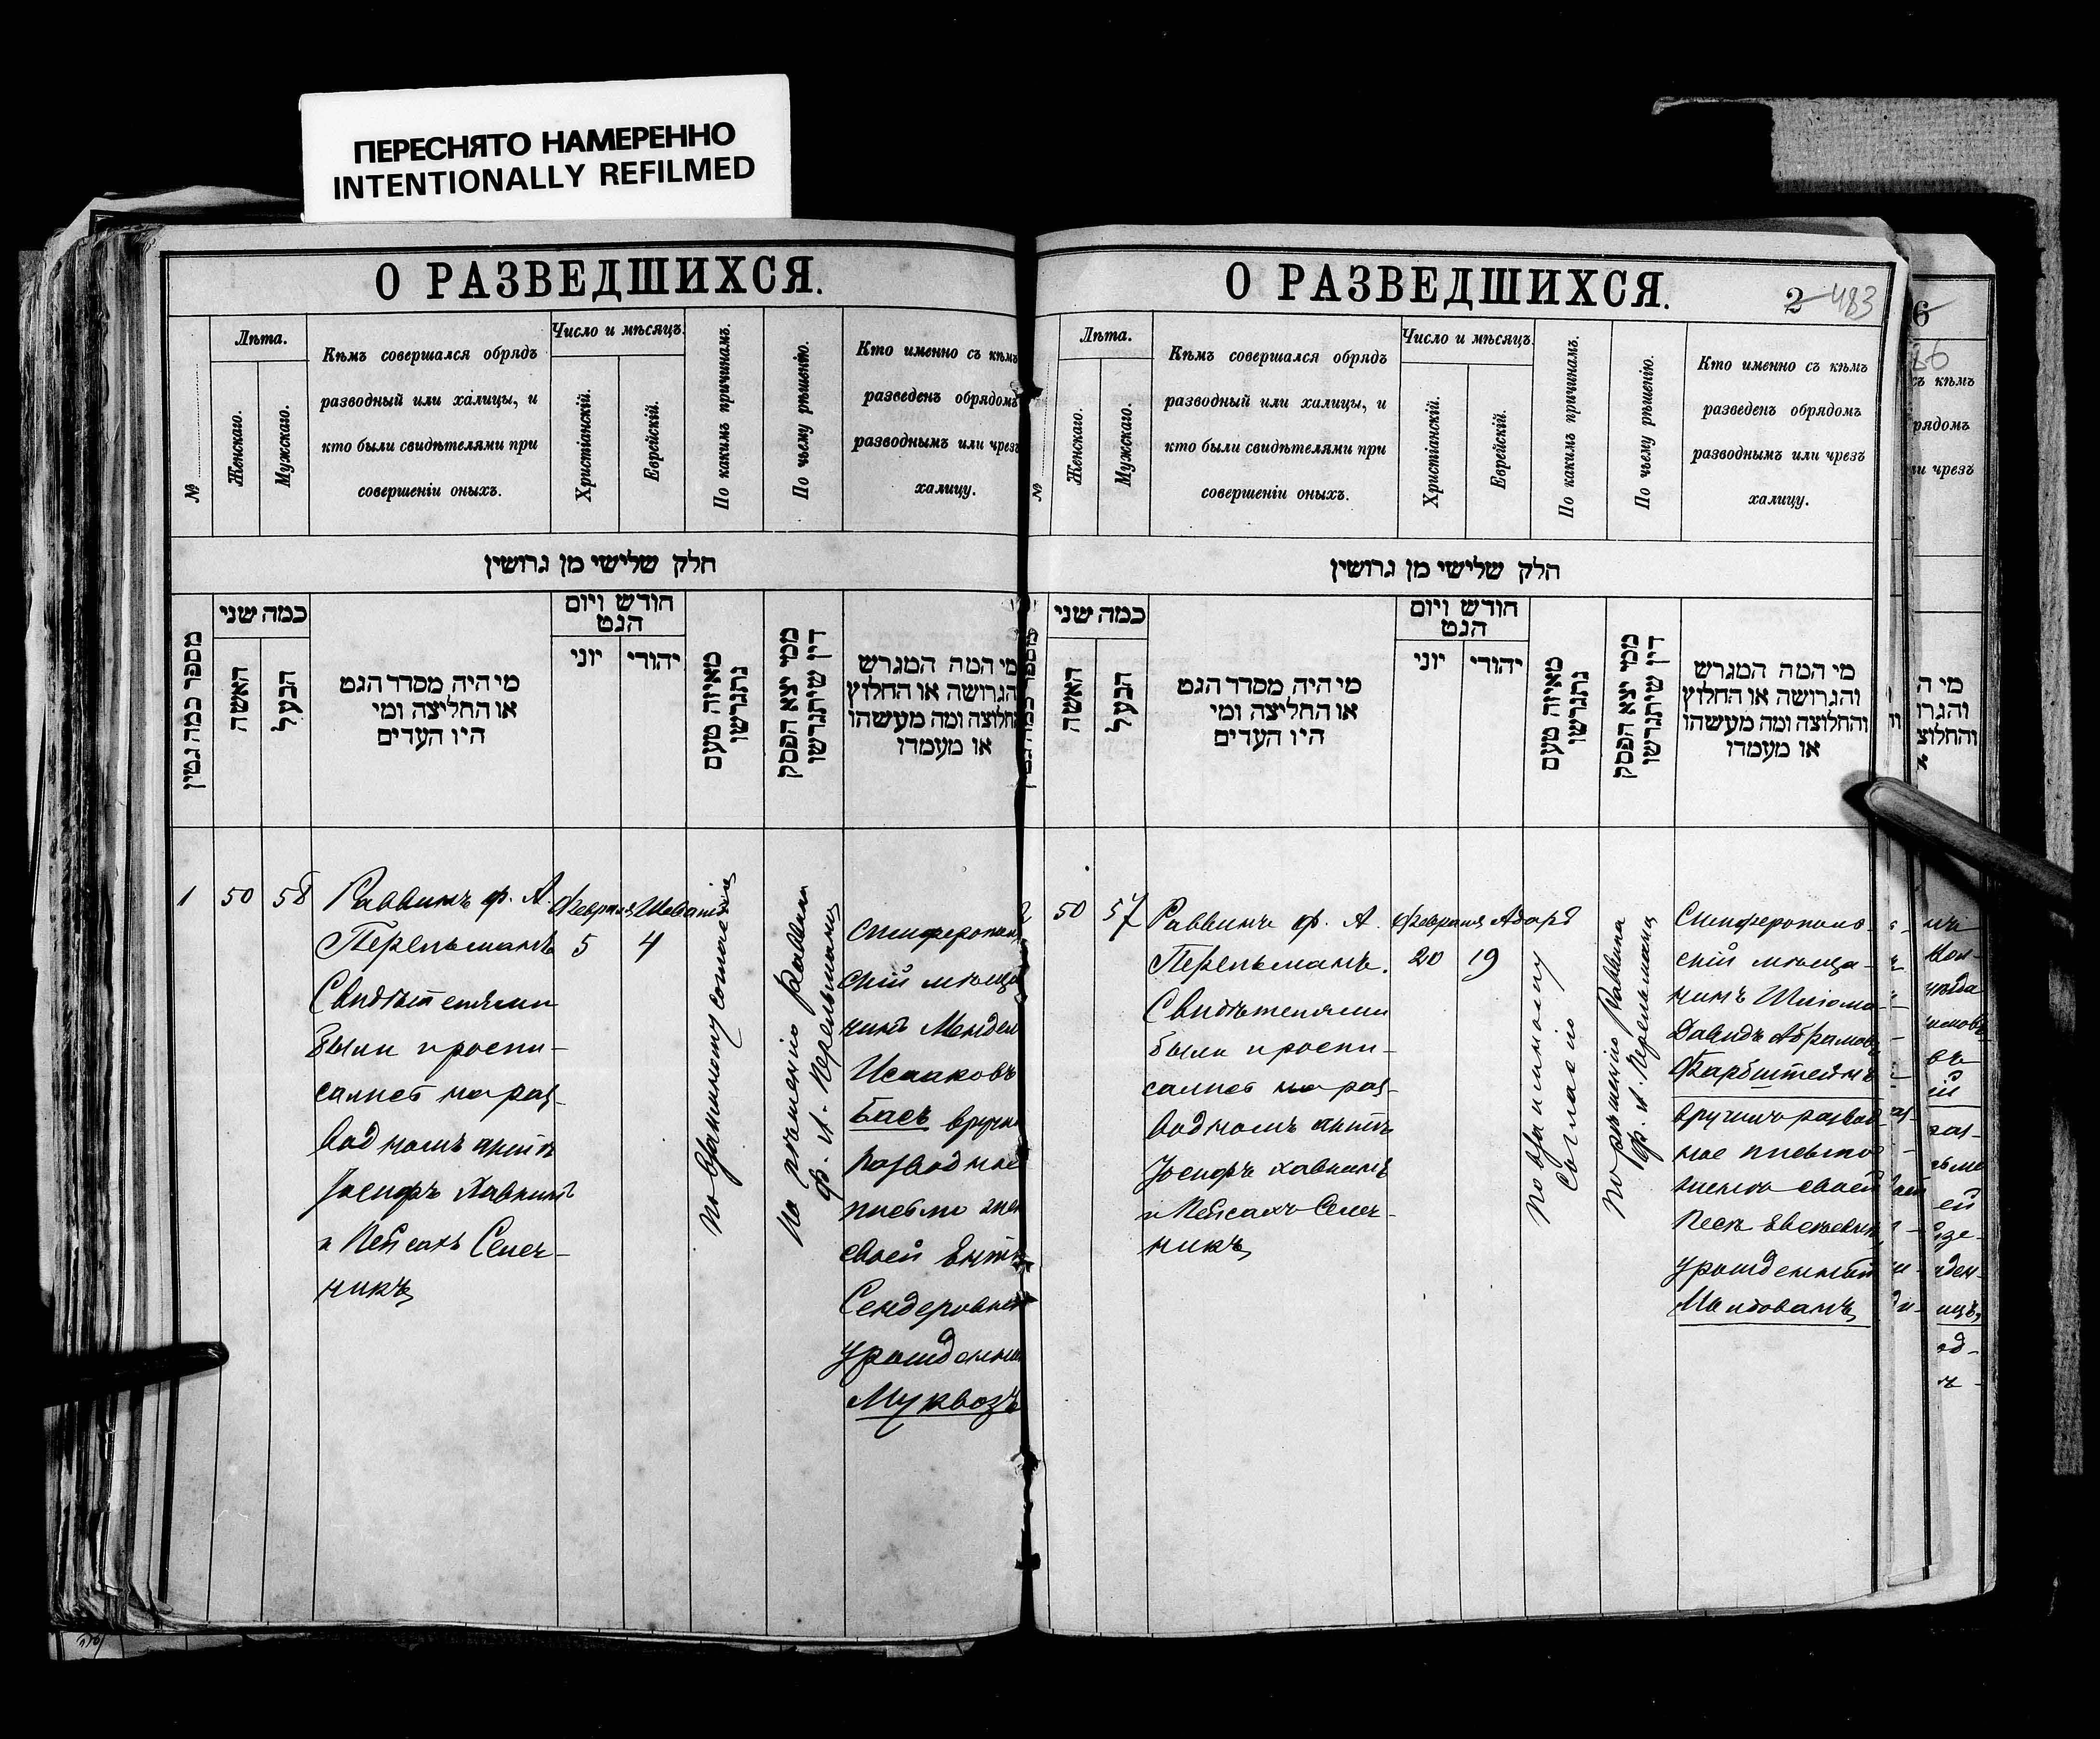 ПЕРЕСНЯТО НАМЕРЕННО
INTENTIONALLY REFILMED
О РАЗВЕДШИХСЯ.
№
Лѣта.
Женскаго.
Мужскаго.
Кѣмъ совершался обрядъ
разводный или халицы, и
кто были свидѣтелями при
совершеніи оныхъ.
Число и мѣсяцъ.
Христіанскій.
Еврейскій.
По какимъ причинамъ.
По чьему рѣшенію.
Кто именно съ кѣмъ
разведенъ обрядомъ
разводнымъ или чрезъ
халицу.
חלק שלישי מן גרושין
מספר כמה גטין
כמה שני
האשה
הבעל
מי היה מסדר הגט
או החליצה ומי
היו העדים
חודש ויום
הגט
יוני
יהודי
מאיזה טעם
נתגרשו
ממי יצא הפסק
דין שיתגרשו
מי המה המגרש
והגרושה או החלוץ
והחלוצה ומה מעשהו
או מעמדו
1
50
58
Раввинъ ф. А.
Перельманъ
Свидѣтелями
были и роспи-
сались на раз-
водномъ актѣ
Іосифъ Хавкинъ
и Пейсахъ Селеч-
никъ
Февраля
5
Шеватъ
4
По взаимному согласію
По рѣшенію Раввина
Ф. А. Перельмана
Симферополь
скій мѣща
нинъ Мендел
Исааковъ
Басъ вручи
разводное
письмо жен
своей
Сендеровной
урожденной
Мукво́зъ
О РАЗВЕДШИХСЯ.
2 483
№
Лѣта.
Женскаго.
Мужскаго.
Кѣмъ совершался обрядъ
разводный или халицы, и
кто были свидѣтелями при
совершеніи оныхъ.
Число и мѣсяцъ.
Христіанскій.
Еврейскій.
По какимъ причинамъ.
По чьему рѣшенію.
Кто именно съ кѣмъ
разведенъ обрядомъ
разводнымъ или чрезъ
халицу.
חלק שלישי מן גרושין
כמה שני
האשה
הבעל
מי היה מסדר הגט
או החליצה ומי
היו העדים
חודש ויום
הגט
יוני
יהודי
מאיזה טעם
נתגרשו
ממי יצא הפסק
דין שיתגרשו
מי המה המגרש
והגרושה או החלוץ
והחלוצה ומה מעשהו
או מעמדו
2
50
57
Раввинъ ф. А.
Перельманъ.
Свидѣтелями
были и роспи-
сались на раз-
водномъ актѣ
Іосифъ Хавкинъ
и Пейсахъ Селеч-
никъ
Февраля
20
Адаръ
19
По взаимному
согласію
По рѣшенію Раввина
Ф. А. Перельмана
Симферополь-
скій мѣща-
нинъ Шліома-
Давидъ Абрамовъ
Фарбштейнъ
вручилъ развод-
ное письмо
женѣ своей
Песѣ
урожденной
Молдованъ
6
съ кѣмъ
рядомъ
ли чрезъ